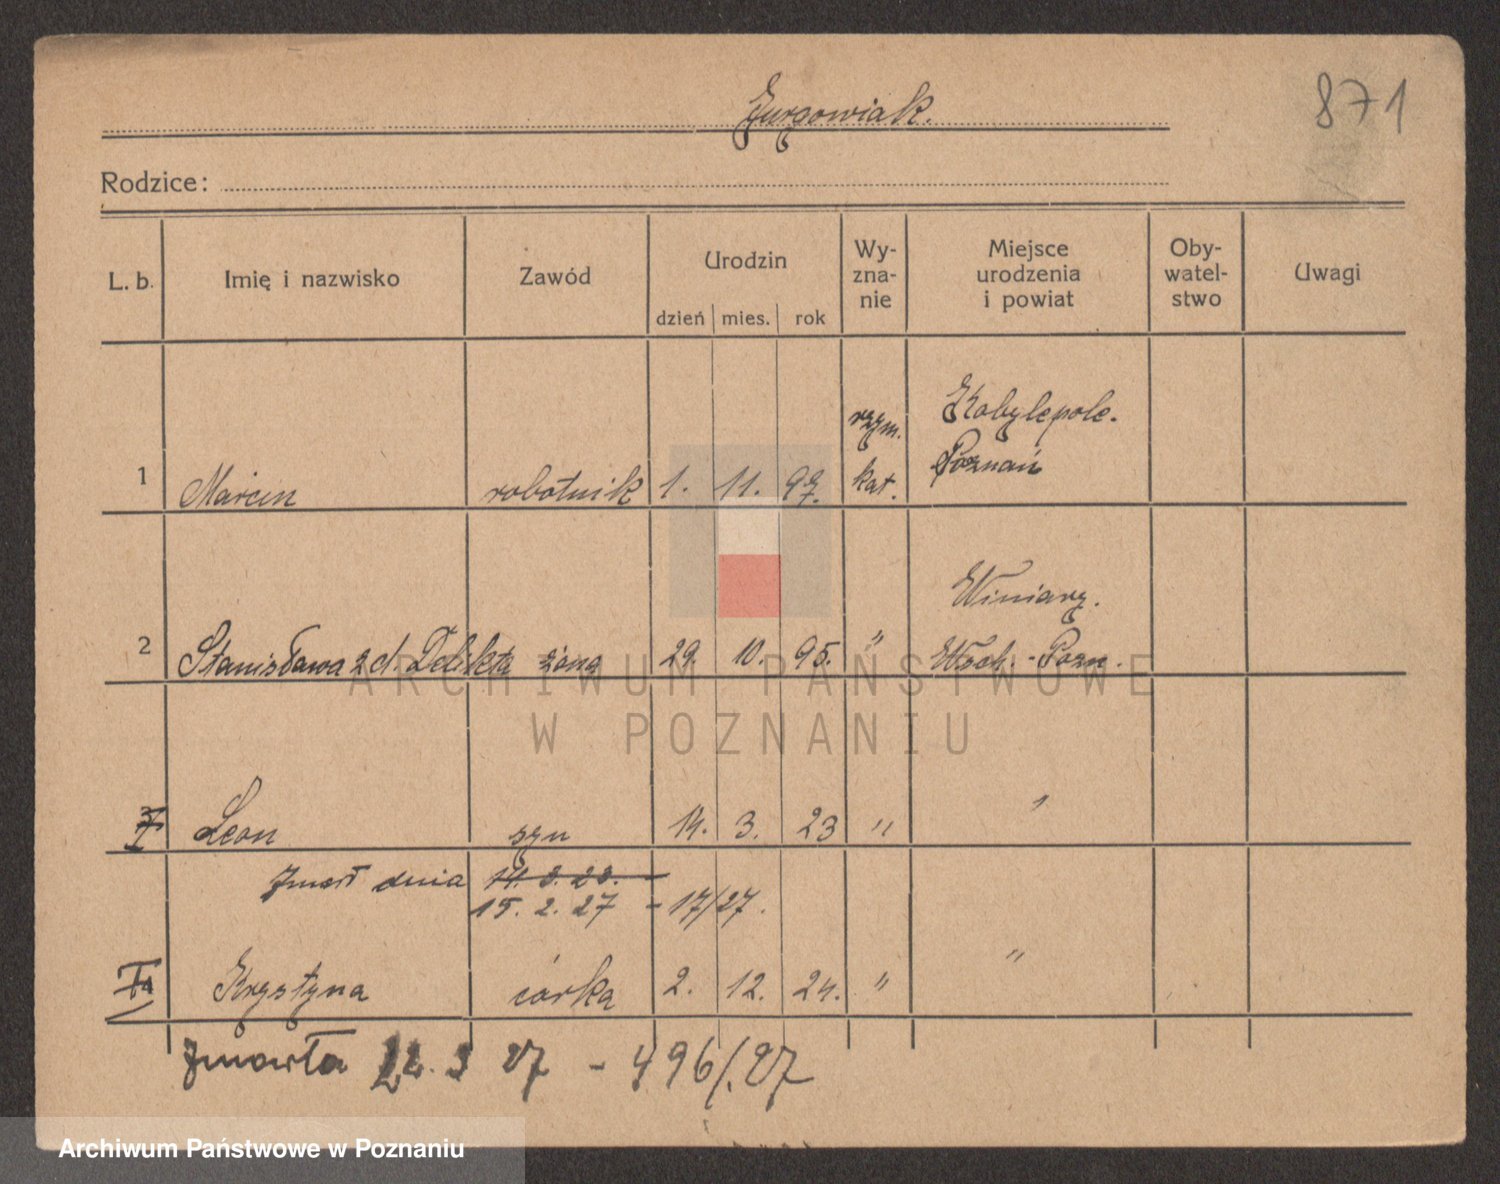 Jurgowiak.
871
Rodzice:
L. b. Imię i nazwisko Zawód Urodzin dzień mies. rok Wy-zna-nie Miejsce urodzenia i powiat Oby-watel-stwo Uwagi
1 Marcin robotnik 1. 11. 97. rzym. kat. Kobylepole. Poznań
2 Stanisława z d. Delikta żona 29. 10. 95. " Winiary. Wsch.-Pozn.
3 Leon syn 14. 3. 23 " "
Zmarł dnia 14. 3. 23.
15. 2. 27 - 17/27.
Krystyna córka 2. 12. 24. " "
Zmarła 22. 3 27 - 496/.27
ARCHIWUM PAŃSTWOWE
W POZNANIU
Archiwum Państwowe w Poznaniu